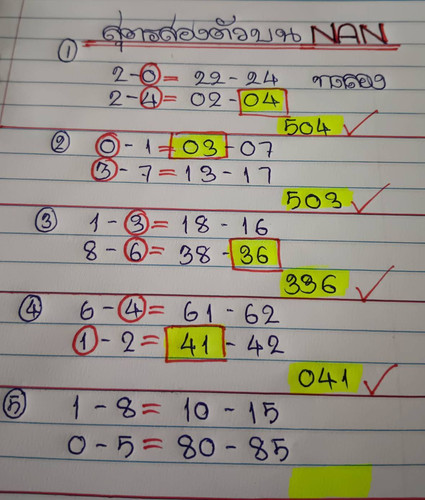 สูตรสองตัวบน NAN
① 2-0= 22-24
2-4= 02-04
504 ✓
② 0-1=03-07
3-7=13-17
503 ✓
③ 1-3= 18-16
8-6= 38-36
336 ✓
④ 6-4= 61-62
1-2= 41-42
041 ✓
⑤ 1-8= 10-15
0-5= 80-85